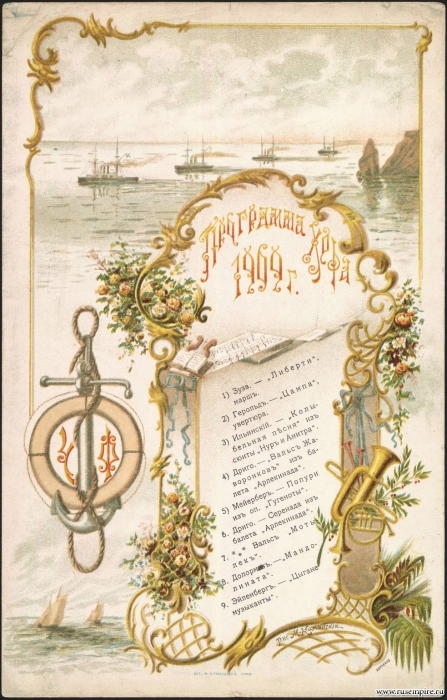 www.rusempire.ru
Программа Хора
1909 г.
1) Зуза. — „Либерти“,
маршъ.
2) Герольдъ. — „Цампа“,
увертюра.
3) Ильинскій. — „Колы-
бельная пѣсня“ изъ
сюиты „Нуръ и Анитра“.
4) Дриго. — „Вальсъ Жа-
воронковъ“ изъ ба-
лета „Арлекинада“.
5) Мейерберъ. — Попури
изъ оп. „Гугеноты“.
6. Дриго. — Серенада изъ
балета „Арлекинада“.
7. *⁎* Вальсъ „Моты-
лекъ“.
8. — „Мандо-
лината“.
9. Эйленбергъ. — „Цыгане
музыканты“.
Ч Ф
www.rusempire.ru